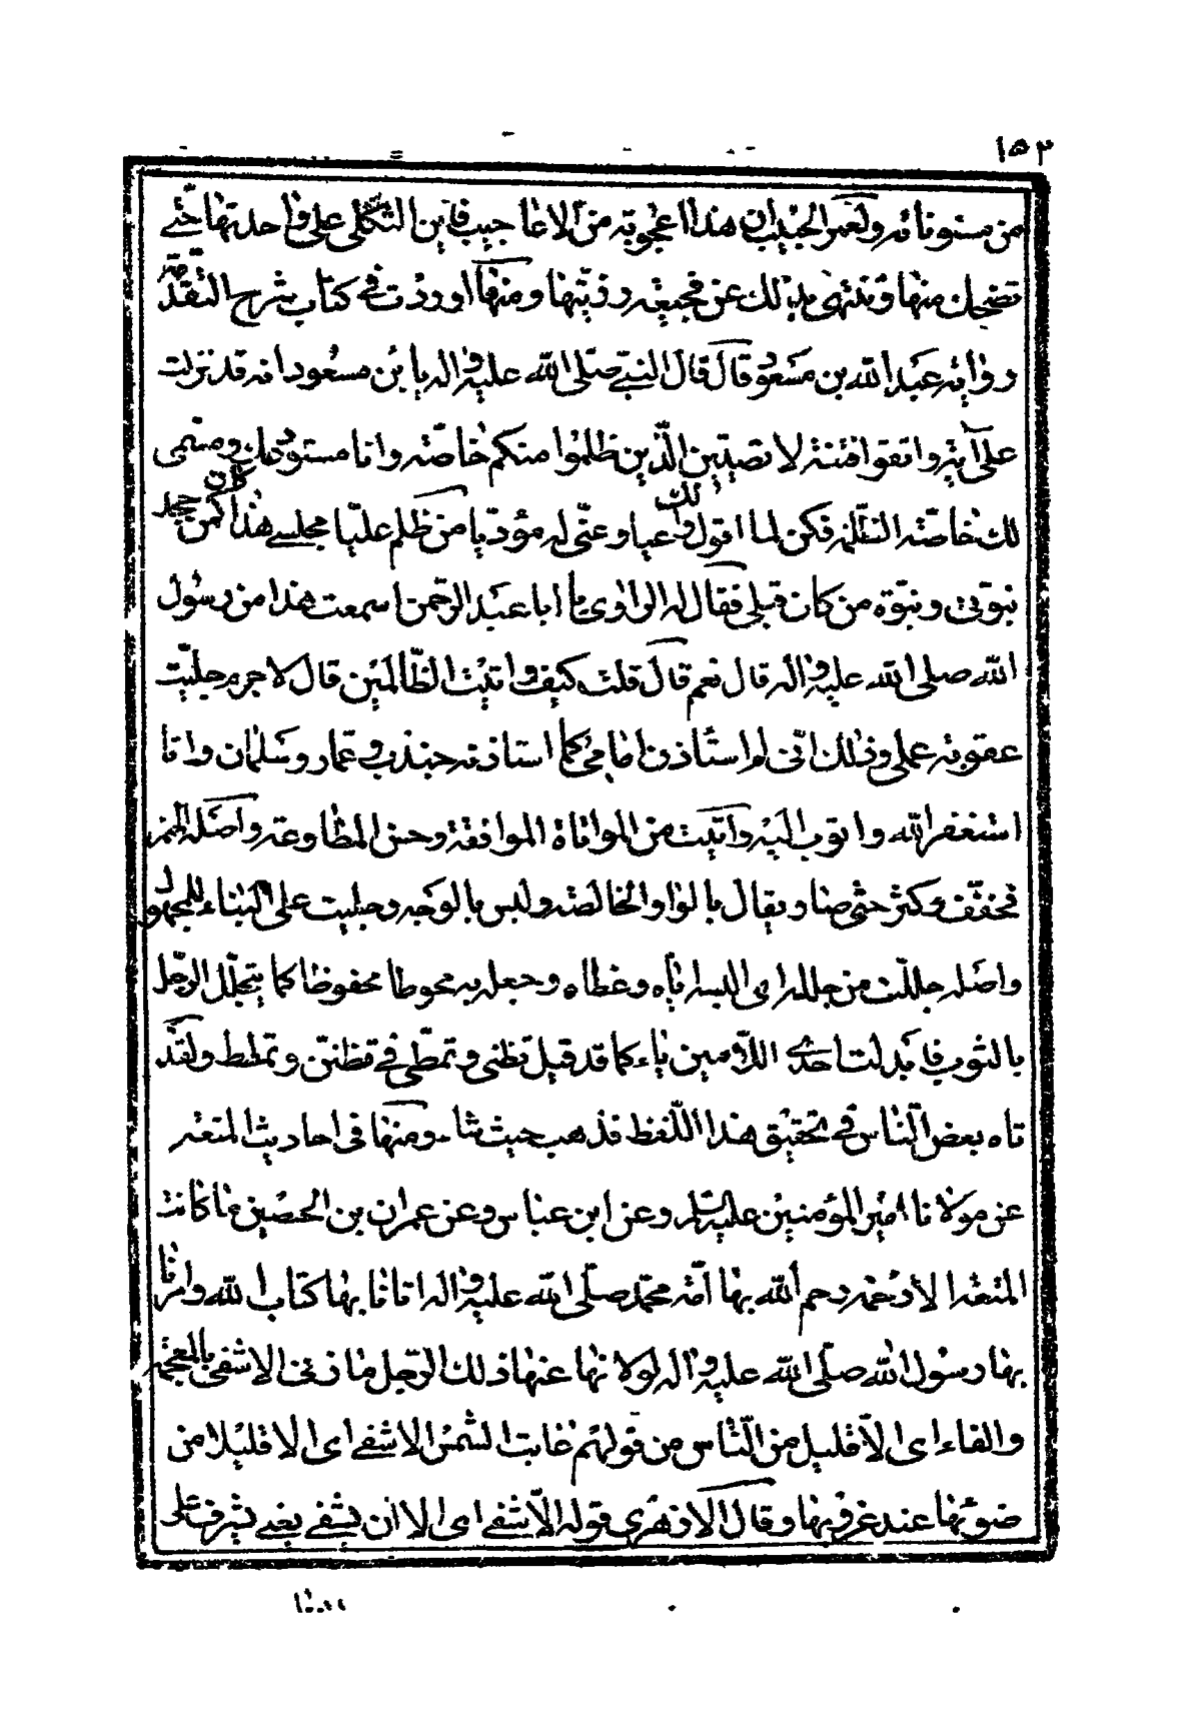 ١٥٢
من مستوناته ولعمر الحبيبان هذا اعجوبة من الاعاجيب فاين الثكلى على واحدتها حتى
تضحك منها وتنتهى بذلك عن فجيعتها ورزيتها ومنها اوردت فى كتاب شرح التقدمة
رواية عبد الله بن مسعود قال قال النبى صلى الله عليه واله يا بن مسعود انه قد نزلت
على آية واتقوا فتنة لا تصيبن الذين ظلموا منكم خاصة وانا مستودعك ومسمى
لك خاصة الظلمة فكن لما اقول لك واعيا وعنى له مؤديا من ظلم عليا مجلسى هذا كان كمن جحد
نبوتى ونبوة من كان قبلى فقال له الراوى يا ابا عبد الرحمن اسمعت هذا من رسول
الله صلى الله عليه واله قال نعم قال قلت كيف واتيت الظالمين قال لا جرم جليت
عقوبة عملى وذلك انى لم استاذن امامى كما استاذنه جندب وعمار وسلمان وانا
استغفر الله واتوب اليه واتيت من المواتاة الموافقة وحسن المطاوعة واصله الهمز
فخفف وكثر حتى صار يقال بالواو الخالصة وليس بالوجه وجليت على البناء للمجهول
واصله جللت من جلله اى البسه اياه وغطاه وجعله به محوطا محفوظا كما يتجلل الرجل
بالثوب فابدلت احدى اللامين ياء كما قد قيل تظنى وتمطى فى تظنن وتمطط ولقد
تاه بعض الناس فى تحقيق هذا اللفظ فذهب حيث شاء ومنها فى احاديث المتعة
عن مولانا امير المؤمنين عليه السلم وعن ابن عباس وعن عمران بن الحصين ما كانت
المتعة الا رحمة رحم الله بها امة محمد صلى الله عليه واله اتانا بها كتاب الله وامرنا
بها رسول الله صلى الله عليه واله لولا نها عنها ذلك الرجل ما زنى الاشفى بالمعجمة
والفاء اى الا قليل من الناس من قولهم غابت الشمس الا شفى اى الا قليلا من
ضوئها عند غروبها وقال الازهرى قوله الا شفى اى الا ان يشفى يعنى يشرف على